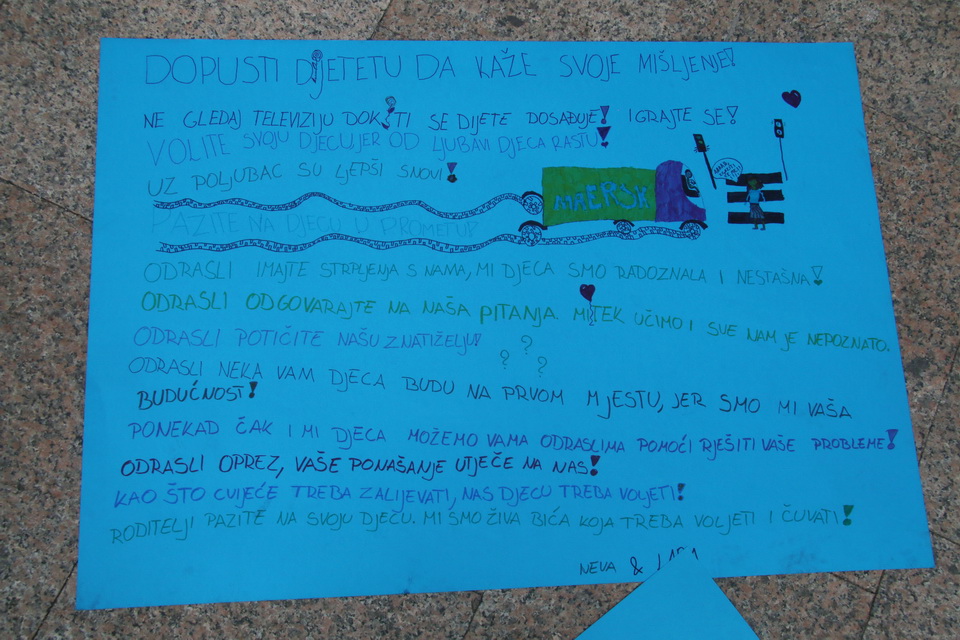 DOPUSTI DJETETU DA KAŽE SVOJE MIŠLJENJE!
NE GLEDAJ TELEVIZIJU DOK TI SE DIJETE DOSAĐUJE! IGRAJTE SE!
VOLITE SVOJU DJECU JER OD LJUBAVI DJECA RASTU!
UZ POLJUBAC SU LJEPŠI SNOVI!
MAERSK
PAZITE NA DJECU U PROMETU!
ODRASLI IMAJTE STRPLJENJA S NAMA, MI DJECA SMO RADOZNALA I NESTAŠNA!
ODRASLI ODGOVARAJTE NA NAŠA PITANJA MI TEK UČIMO I SVE NAM JE NEPOZNATO.
ODRASLI POTIČITE NAŠU ZNATIŽELJU! ? ? ?
ODRASLI NEKA VAM DJECA BUDU NA PRVOM MJESTU, JER SMO MI VAŠA
BUDUĆNOST!
PONEKAD ČAK I MI DJECA MOŽEMO VAMA ODRASLIMA POMOĆI RJEŠITI VAŠE PROBLEME!
ODRASLI OPREZ, VAŠE PONAŠANJE UTJEČE NA NAS!
KAO ŠTO CVIJEĆE TREBA ZALIJEVATI, NAS DJECU TREBA VOLJETI!
RODITELJI PAZITE NA SVOJU DJECU. MI SMO ŽIVA BIĆA KOJA TREBA VOLJETI I ČUVATI!
NEVA &